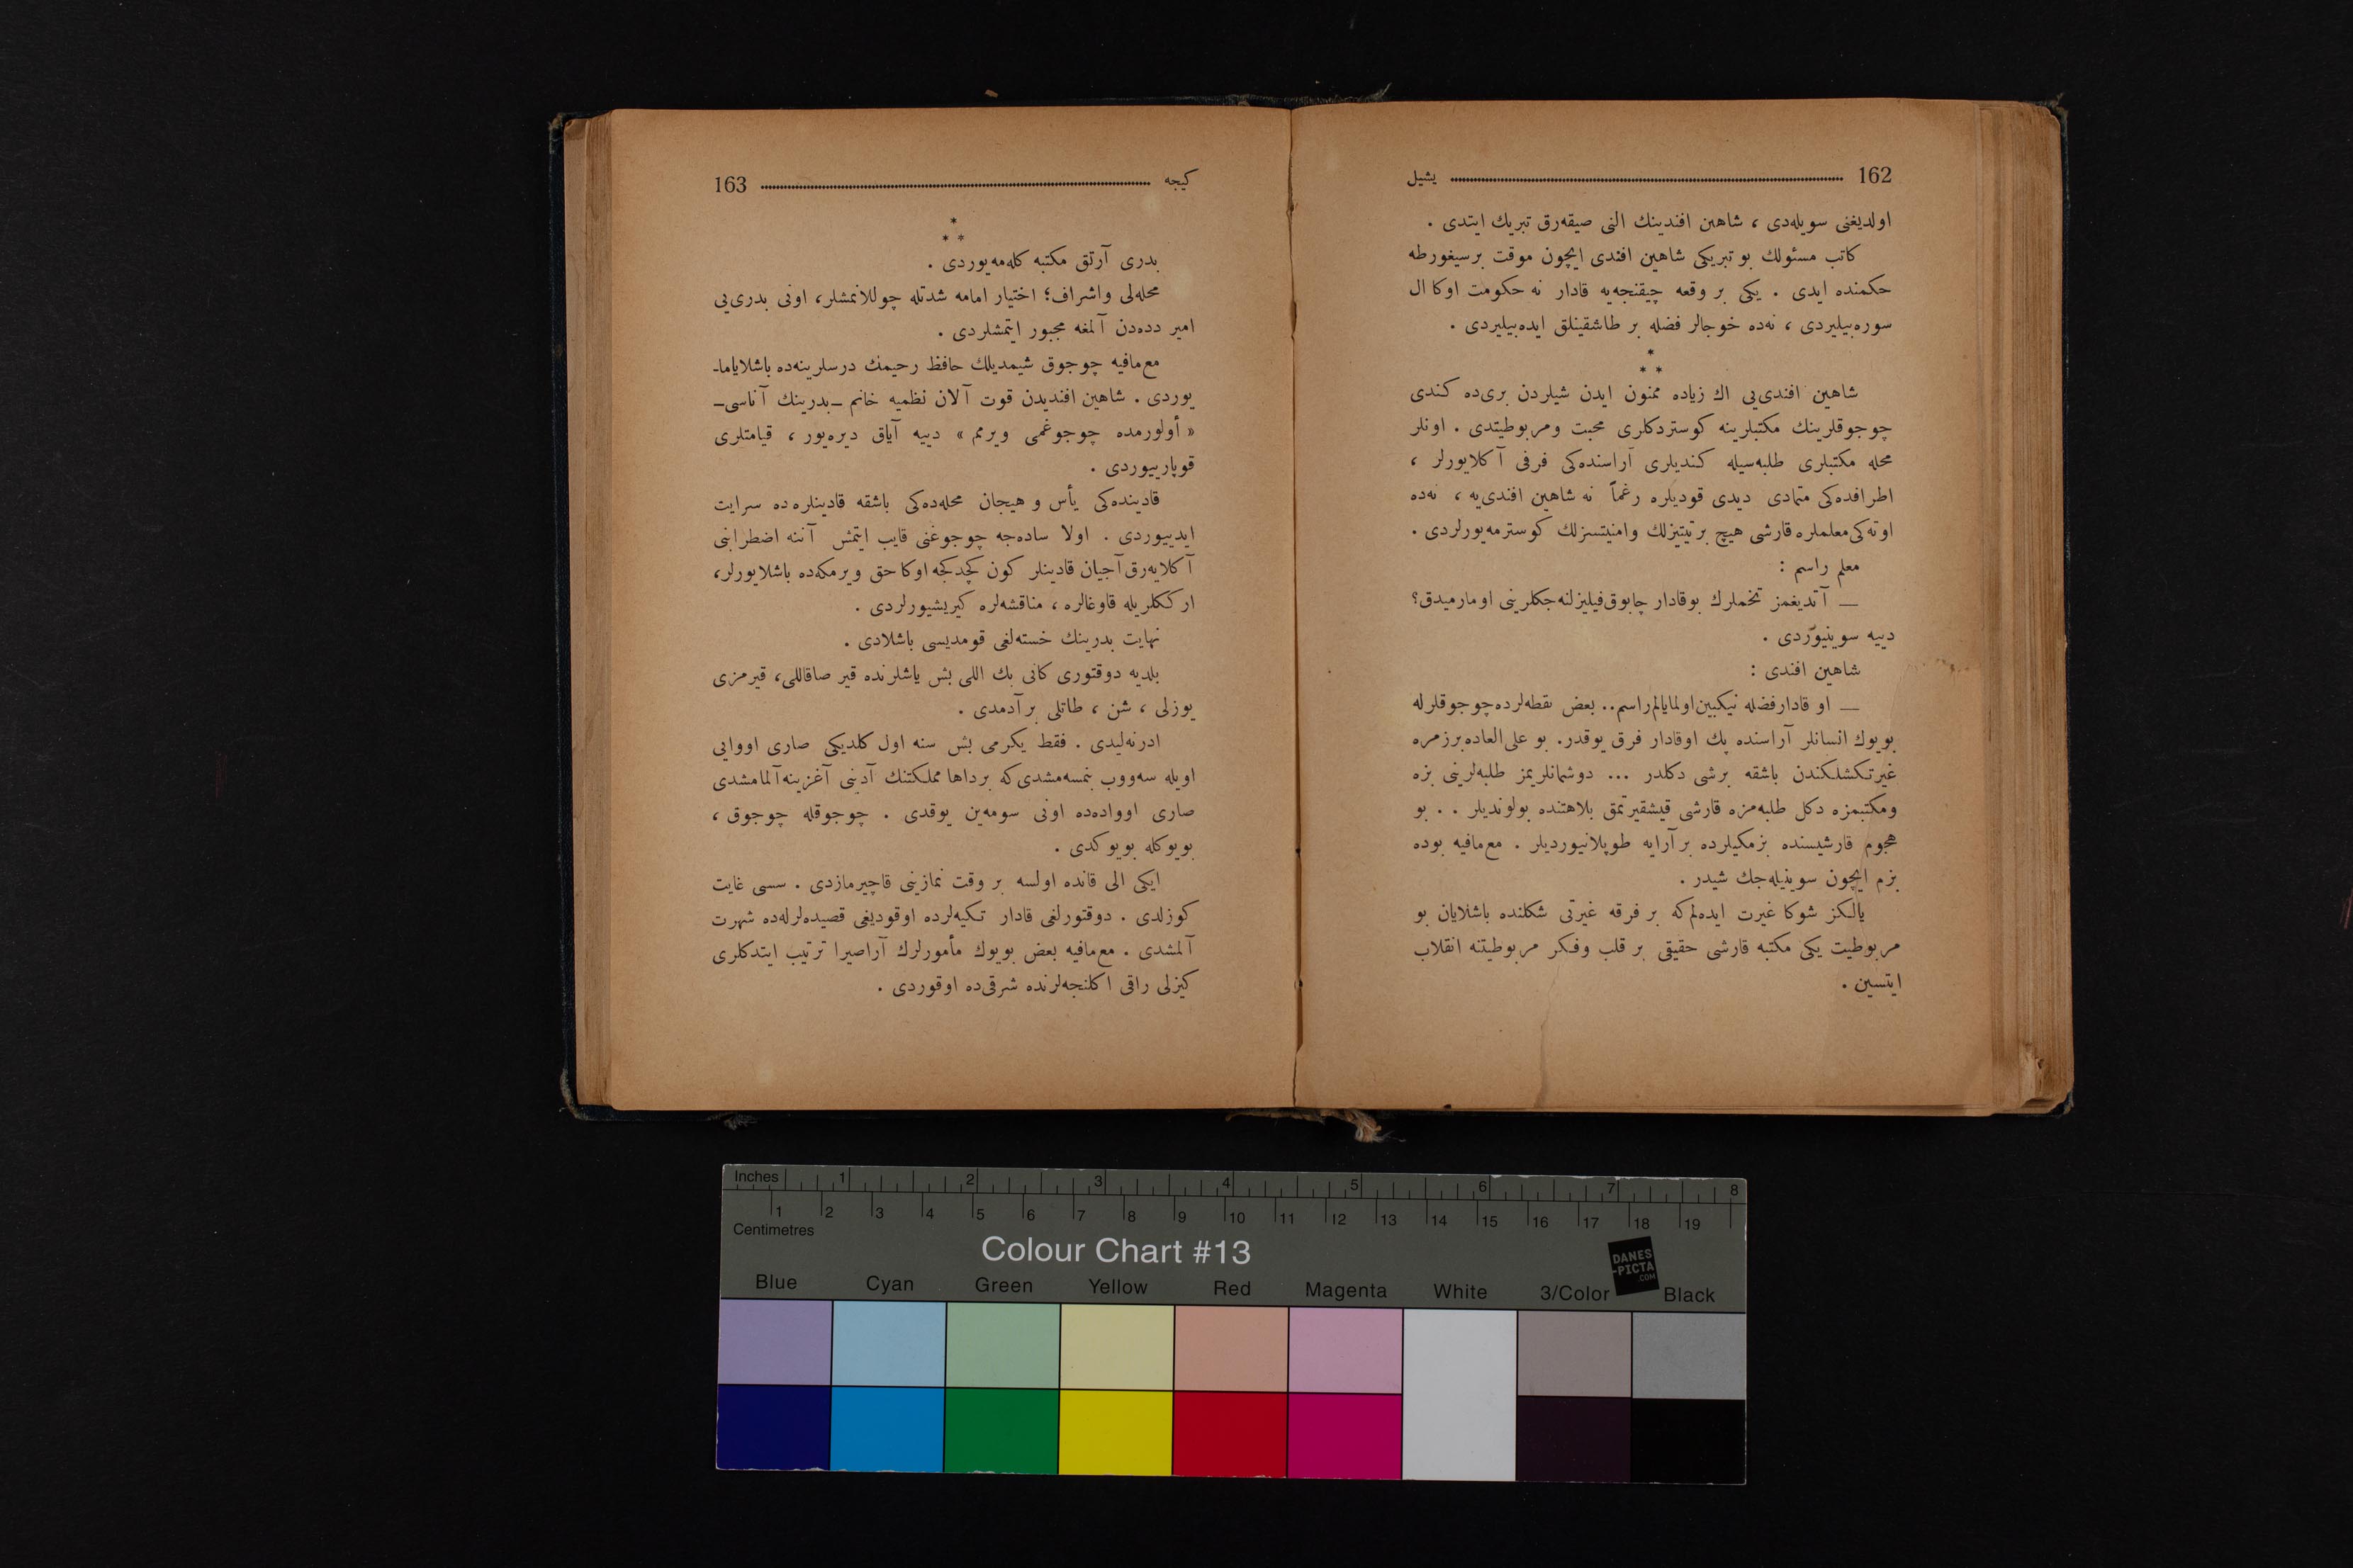 162 یشیل
اولدیغنی سویله‌دی ، شاهین افندینك النی صیقه‌رق تبریك ایتدی .
كاتب مسئولك بو تبریكی شاهین افندی ایچون موقت برسیغورطه
حكمنده ایدی . یكی بر وقعه چیقنجه‌یه قادار نه حكومت اوكا ال
سوره‌بیلیردی ، نه‌ده خوجالر فضله بر طاشقینلق ایده‌بیلیردی .
*
* *
شاهین افندی‌یی اك زیاده ممنون ایدن شیلردن بری‌ده كندی
چوجوقلرینك مكتبلرینه كوستردكلری محبت ومربوطیتدی . اونلر
محله مكتبلری طلبه‌سیله كندیلری آراسنده‌كی فرقی آكلایورلر ،
اطرافده‌كی متمادی دیدی قودیلره رغماً نه شاهین افندی‌یه ، نه‌ده
اوته‌كی‌معلملره قارشی هیچ برتیتیزلك وامنیتسزلك كوسترمه‌یورلردی .
معلم راسم :
— آتدیغمز تخملرك بوقادار چابوق‌فیلیزلنه‌جكلرینی اومارمیدق؟
دییه سوینیوردی .
شاهین افندی :
— او قادارفضله نیكبین‌اولمایالم‌راسم.. بعض نقطه‌لرده‌چوجوقلرله
بویوك انسانلر آراسنده پك اوقادار فرق یوقدر. بو علی‌العاده‌برزمره
غیرتكشلكندن باشقه برشی دكلدر ... دوشمانلریمز طلبه‌لرینی بزه
ومكتبمزه دكل طلبه‌مزه قارشی قیشقیرتمق بلاهتنده بولوندیلر . . بو
هجوم قارشیسنده بزمكیلرده بر آرایه طوپلانیوردیلر . مع‌مافیه بوده
بزم ایچون سوینیله‌جك شیدر .
یالكز شوكا غیرت ایده‌لم‌كه بر فرقه غیرتی شكلنده باشلایان بو
مربوطیت یكی مكتبه قارشی حقیقی بر قلب وفكر مربوطیتنه انقلاب
ایتسین .
كیجه 163
*
* *
بدری آرتق مكتبه كله‌مه‌یوردی .
محله‌لی واشراف؛ اختیار امامه شدتله چوللانمشلر، اونی بدری‌یی
امیر دده‌دن آلمغه مجبور ایتمشلردی .
مع‌مافیه چوجوق شیمدیلك حافظ رحیمك درسلرینه‌ده باشلایاما-
یوردی . شاهین افندیدن قوت آلان نظمیه خانم —بدرینك آناسی—
« أولورمده چوجوغمی ویرمم » دییه آیاق دیره‌یور ، قیامتلری
قوپارییوردی .
قادینده‌كی یأس و هیجان محله‌ده‌كی باشقه قادینلره‌ده سرایت
ایدییوردی . اولا ساده‌جه چوجوغنی قایب ایتمش آننه اضطرابنی
آكلایه‌رق‌آجیان قادینلر كون كچدكجه اوكا حق ویرمكه‌ده باشلایورلر،
ارككلریله قاوغالره ، مناقشه‌لره كیریشیورلردی .
نهایت بدرینك خسته‌لغی قومدیسی باشلادی .
بلدیه دوقتوری كانی بك اللی بش یاشلرنده قیر صاقاللی، قیرمزی
یوزلی ، شن ، طاتلی بر آدمدی .
ادرنه‌لیدی . فقط یكرمی بش سنه اول كلدیكی صاری اووایی
اویله سه‌ووب بنمسه‌مشدی‌كه برداها مملكتنك آدینی آغزینه‌آلمامشدی
صاری اوواده‌ده اونی سومه‌ین یوقدی . چوجوقله چوجوق ،
بویوكله بویوكدی .
ایكی الی قانده اولسه بر وقت نمازینی قاچیرمازدی . سسی غایت
كوزلدی . دوقتورلغی قادار تكیه‌لرده اوقودیغی قصیده‌لرله‌ده شهرت
آلمشدی . مع‌مافیه بعض بویوك مأمورلرك آراصیرا ترتیب ایتدكلری
كیزلی راقی اكلنجه‌لرنده شرقی‌ده اوقوردی .
Inches 1 2 3 4 5 6 7 8
1 2 3 4 5 6 7 8 9 10 11 12 13 14 15 16 17 18 19
Centimetres
Colour Chart #13
DANES
-PICTA
.COM
Blue Cyan Green Yellow Red Magenta White 3/Color Black